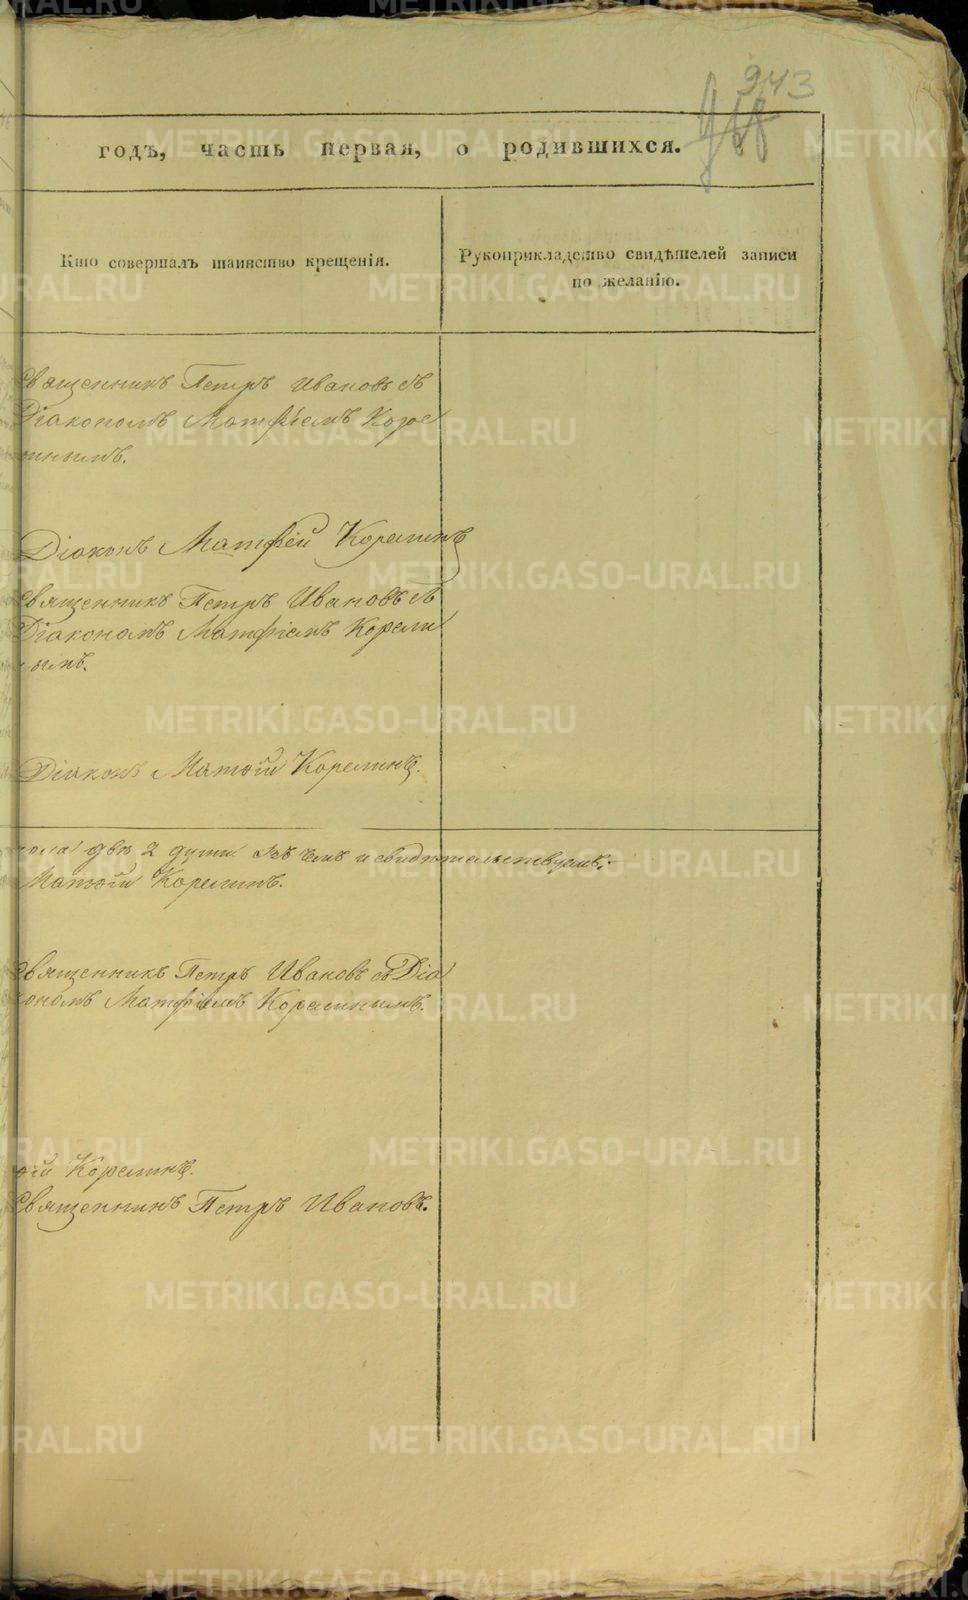 943
годъ, часть первая, о родившихся.
Кто совершалъ таинство крещенія.
Рукоприкладство свидѣтелей записи
по желанію.
Священникъ Петръ Ивановъ съ
Діакономъ Матфіемъ Коре
Діаконъ Матфій Корелинъ
Священникъ Петръ Ивановъ съ
Діакономъ Матфіемъ Корели
нымъ.
Діаконъ Матфій Корелинъ.
двѣ 2 души въ чемъ и свидѣтельствуемъ:
Матфій Корелинъ.
Священникъ Петръ Ивановъ съ Діа
кономъ Матфіемъ Корелинымъ.
фій Корелинъ.
Священникъ Петръ Ивановъ.
METRIKI.GASO-URAL.RU